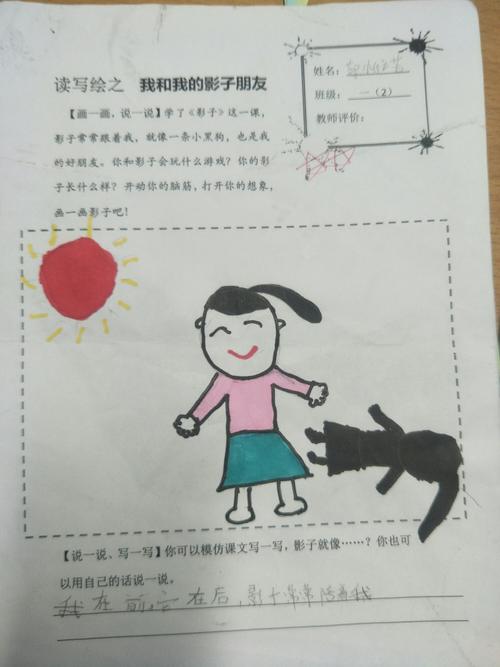 读写绘之 我和我的影子朋友
姓名：
班级：一（2）
教师评价：
【画一画，说一说】学了《影子》这一课，
影子常常跟着我，就像一条小黑狗，也是我
的好朋友。你和影子会玩什么游戏？你的影
子长什么样？开动你的脑筋，打开你的想象，
画一画影子吧！
【说一说、写一写】你可以模仿课文写一写，影子就像……？你也可
以用自己的话说一说。
我在前，它在后，影子常常陪着我